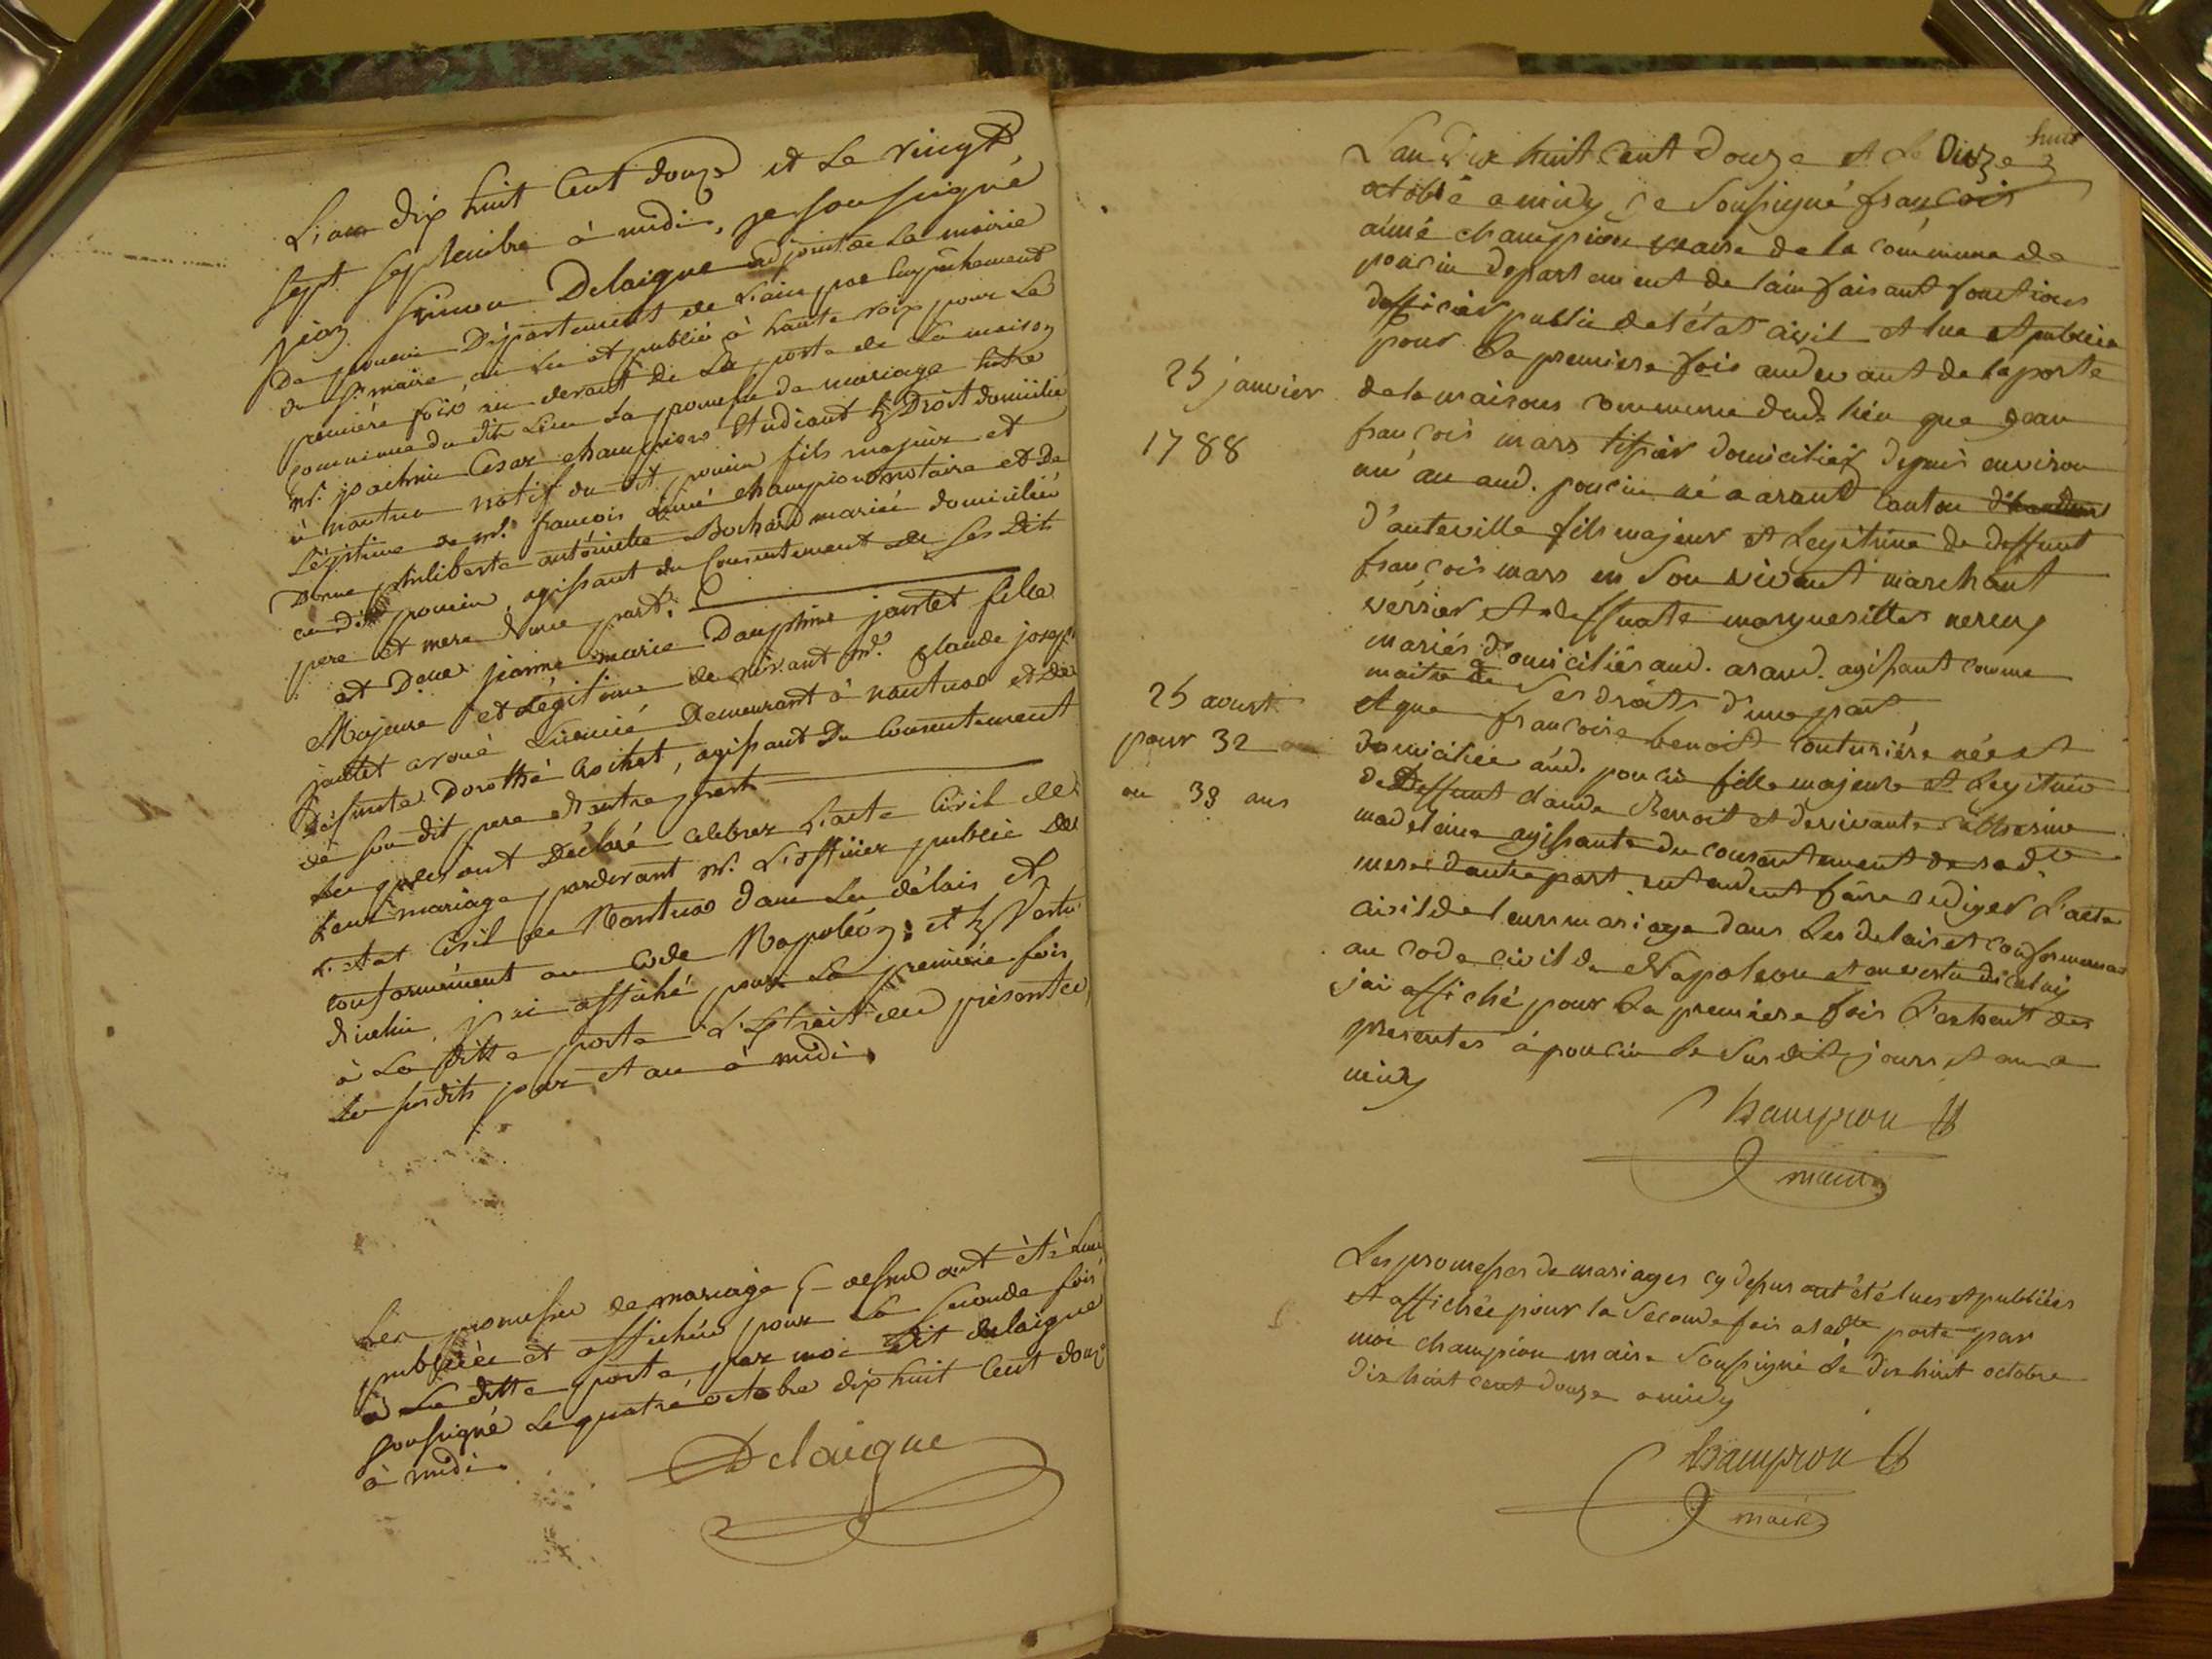 L'an dix huit Cent douze et Le vingt
sept septembre à midi, je soussigné
jean simon Delaigue adjoint de La mairie
de poncin Département de L'ain par Empêchement
du sr. maire, ai Lu et publié à haute voix pour La
première fois au devant de La porte de La maison
commune du dit Lieu La promesse de mariage Entre
mr. joachim Cesar champion Etudiant En Droit domicilié
à nantua natif du dit poncin fils majeur et
Légitime de mr. françois aimé champion notaire et de
Dame philiberte antoinette Bochard mariés domiciliés
au dit poncin, agissant du Consentement de ses dits
pere et mere d'une part;
et Dlle. jeanne marie Dauphine jantet fille
Majeure et Légitime de vivant mr. Claude joseph
jantet avoué Licencié Demeurant à nantua et de
Défunte Dorothé Cochet, agissant du Consentement
de son dit pere d'autre part
Lesquels ont Déclaré celebrer L'acte Civil de
Leur mariage pardevant mr. L'officier public de
L'etat Civil de Nantua dans Les délais et
conformément au Code Napoléon; et En Vertu
d'icelui j'ai affiché pour La première fois
à La ditte porte L'Extrait des présentes
les susdits jour et an à midi.
Les promesses de mariage Cy dessus ont été Lues
publiées et affichées pour La seconde fois
à La ditte porte, par moi dit delaigue
soussigné Le quatre octobre dix huit Cent douze
à midi.
Delaigue
L'an dix huit Cent douze et Le Onze huit
octobre a midy je Soussigné françois
aimé champion maire de la commune de
poncin departement de lain faisant fonctions
dofficier public de l'état civil et lue et publiée
pour La premiere fois au devant de la porte
de la maison commune dud. lieu que jean
françois mars tissier domicilié depuis environ
un an aud. poncin né a arand canton
d'auteville fils majeur et Legitime de deffunt
françois mars en Son vivant marchant
verrier et deffunte
mariés domiciliés aud. arand. agissant comme
maitre de Ses droits d'une part,
et que francoise benoist couturiére née et
domiciliée aud. poncin fille majeure et Legitime
de Deffunt claude Benoit et de vivante catherine
madeleine agissante du consentement de sad.te
mere d'autre part. entendent faire rediger L'acte
civil de leur mariage dans Les delais et conformement
au code civil de Napoleon et en vertu dicelui
j'ai affiché pour La premiere fois L'extrait des
presentes à poncin Le Susdit jours et an a
midy
Champion
maire
25 janvier
1788
25 aoust
pour 32
ou 33 ans
Les promesses de mariages cy dessus ont été lues et publiées
et affichée pour la Seconde fois a lad.te porte par
moi champion maire Soussigné Le dix huit octobre
dix huit cent douze a midy
Champion
maire